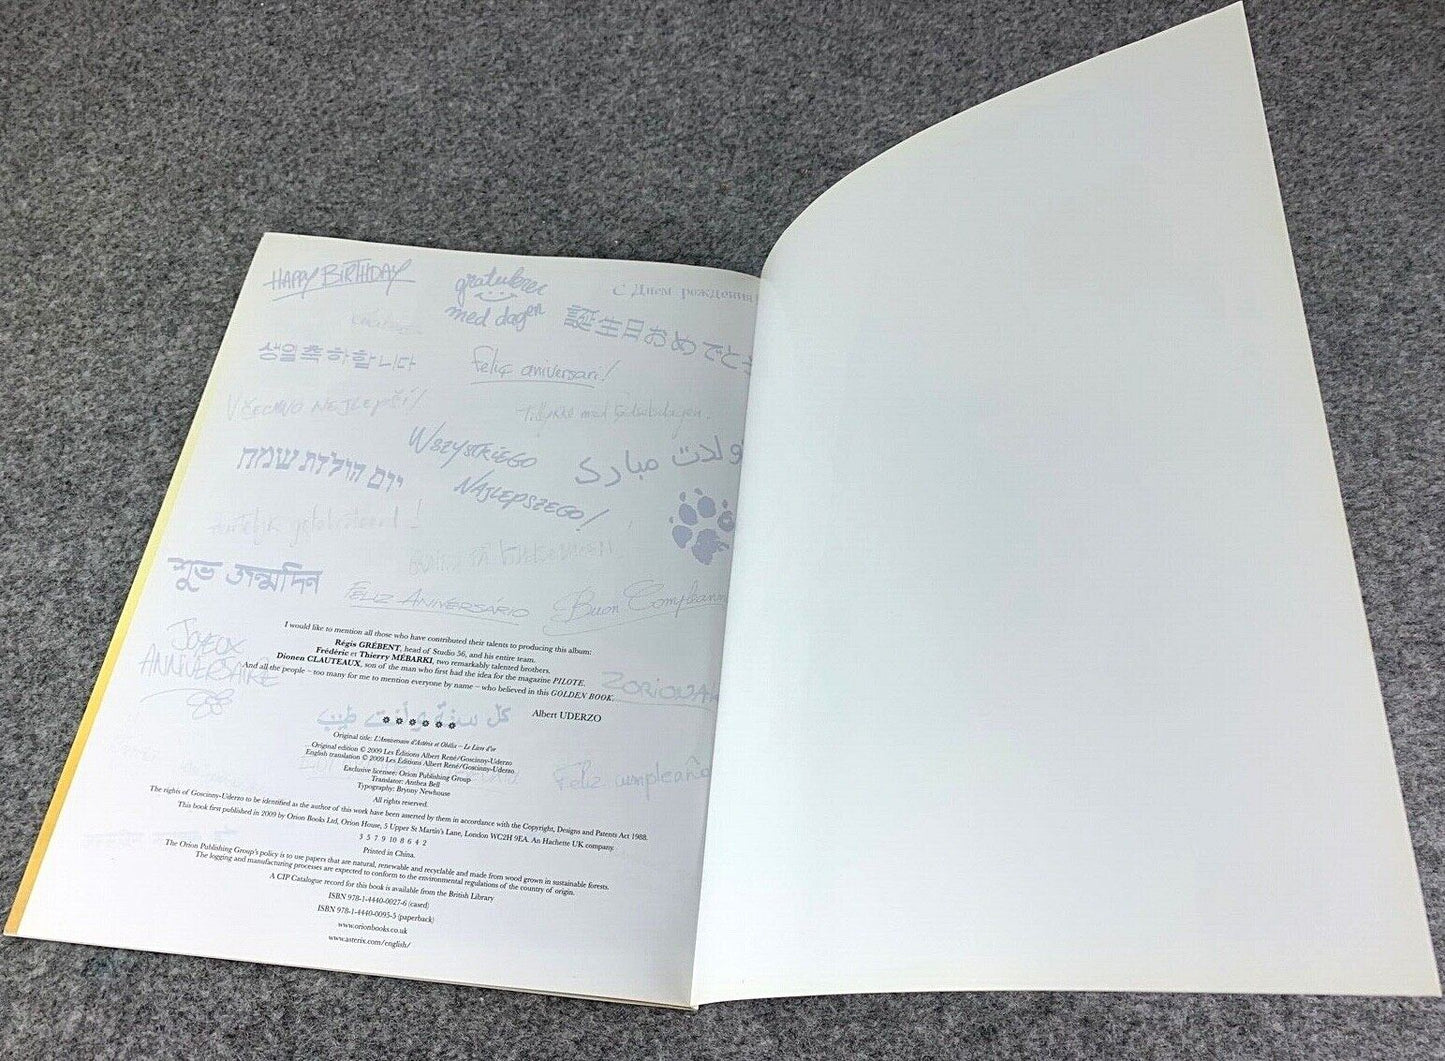 HAPPY BIRTHDAY
gratulerer
med dagen
С Днем рождения
誕生日おめでとう
생일축하합니다
Feliç aniversari!
Všechno nejlepší!
יום הולדת שמח
Wszystkiego
Najlepszego!
تولدت مبارک
শুভ জন্মদিন
Feliz Aniversário
Buon Complean
Joyeux
Anniversaire
I would like to mention all those who have contributed their talents to producing this album:
Régis GRÉBENT, head of Studio 56, and his entire team.
Frédéric et Thierry MÉBARKI, two remarkably talented brothers.
Dionen CLAUTEAUX, son of the man who first had the idea for the magazine PILOTE.
And all the people – too many for me to mention everyone by name – who believed in this GOLDEN BOOK.
Zorionak
Albert UDERZO
كل سنة وانت طيب
Original title: L'Anniversaire d'Astérix et Obélix – Le Livre d'or
Original edition © 2009 Les Éditions Albert René/Goscinny-Uderzo
English translation © 2009 Les Éditions Albert René/Goscinny-Uderzo
Exclusive licensee: Orion Publishing Group
Translator: Anthea Bell
Typography: Bryony Newhouse
Feliz cumpleaño
All rights reserved.
The rights of Goscinny-Uderzo to be identified as the author of this work have been asserted by them in accordance with the Copyright, Designs and Patents Act 1988.
This book first published in 2009 by Orion Books Ltd, Orion House, 5 Upper St Martin's Lane, London WC2H 9EA. An Hachette UK company.
3 5 7 9 10 8 6 4 2
Printed in China.
The Orion Publishing Group's policy is to use papers that are natural, renewable and recyclable and made from wood grown in sustainable forests.
The logging and manufacturing processes are expected to conform to the environmental regulations of the country of origin.
A CIP Catalogue record for this book is available from the British Library
ISBN 978-1-4440-0027-6 (cased)
ISBN 978-1-4440-0095-5 (paperback)
www.orionbooks.co.uk
www.asterix.com/english/